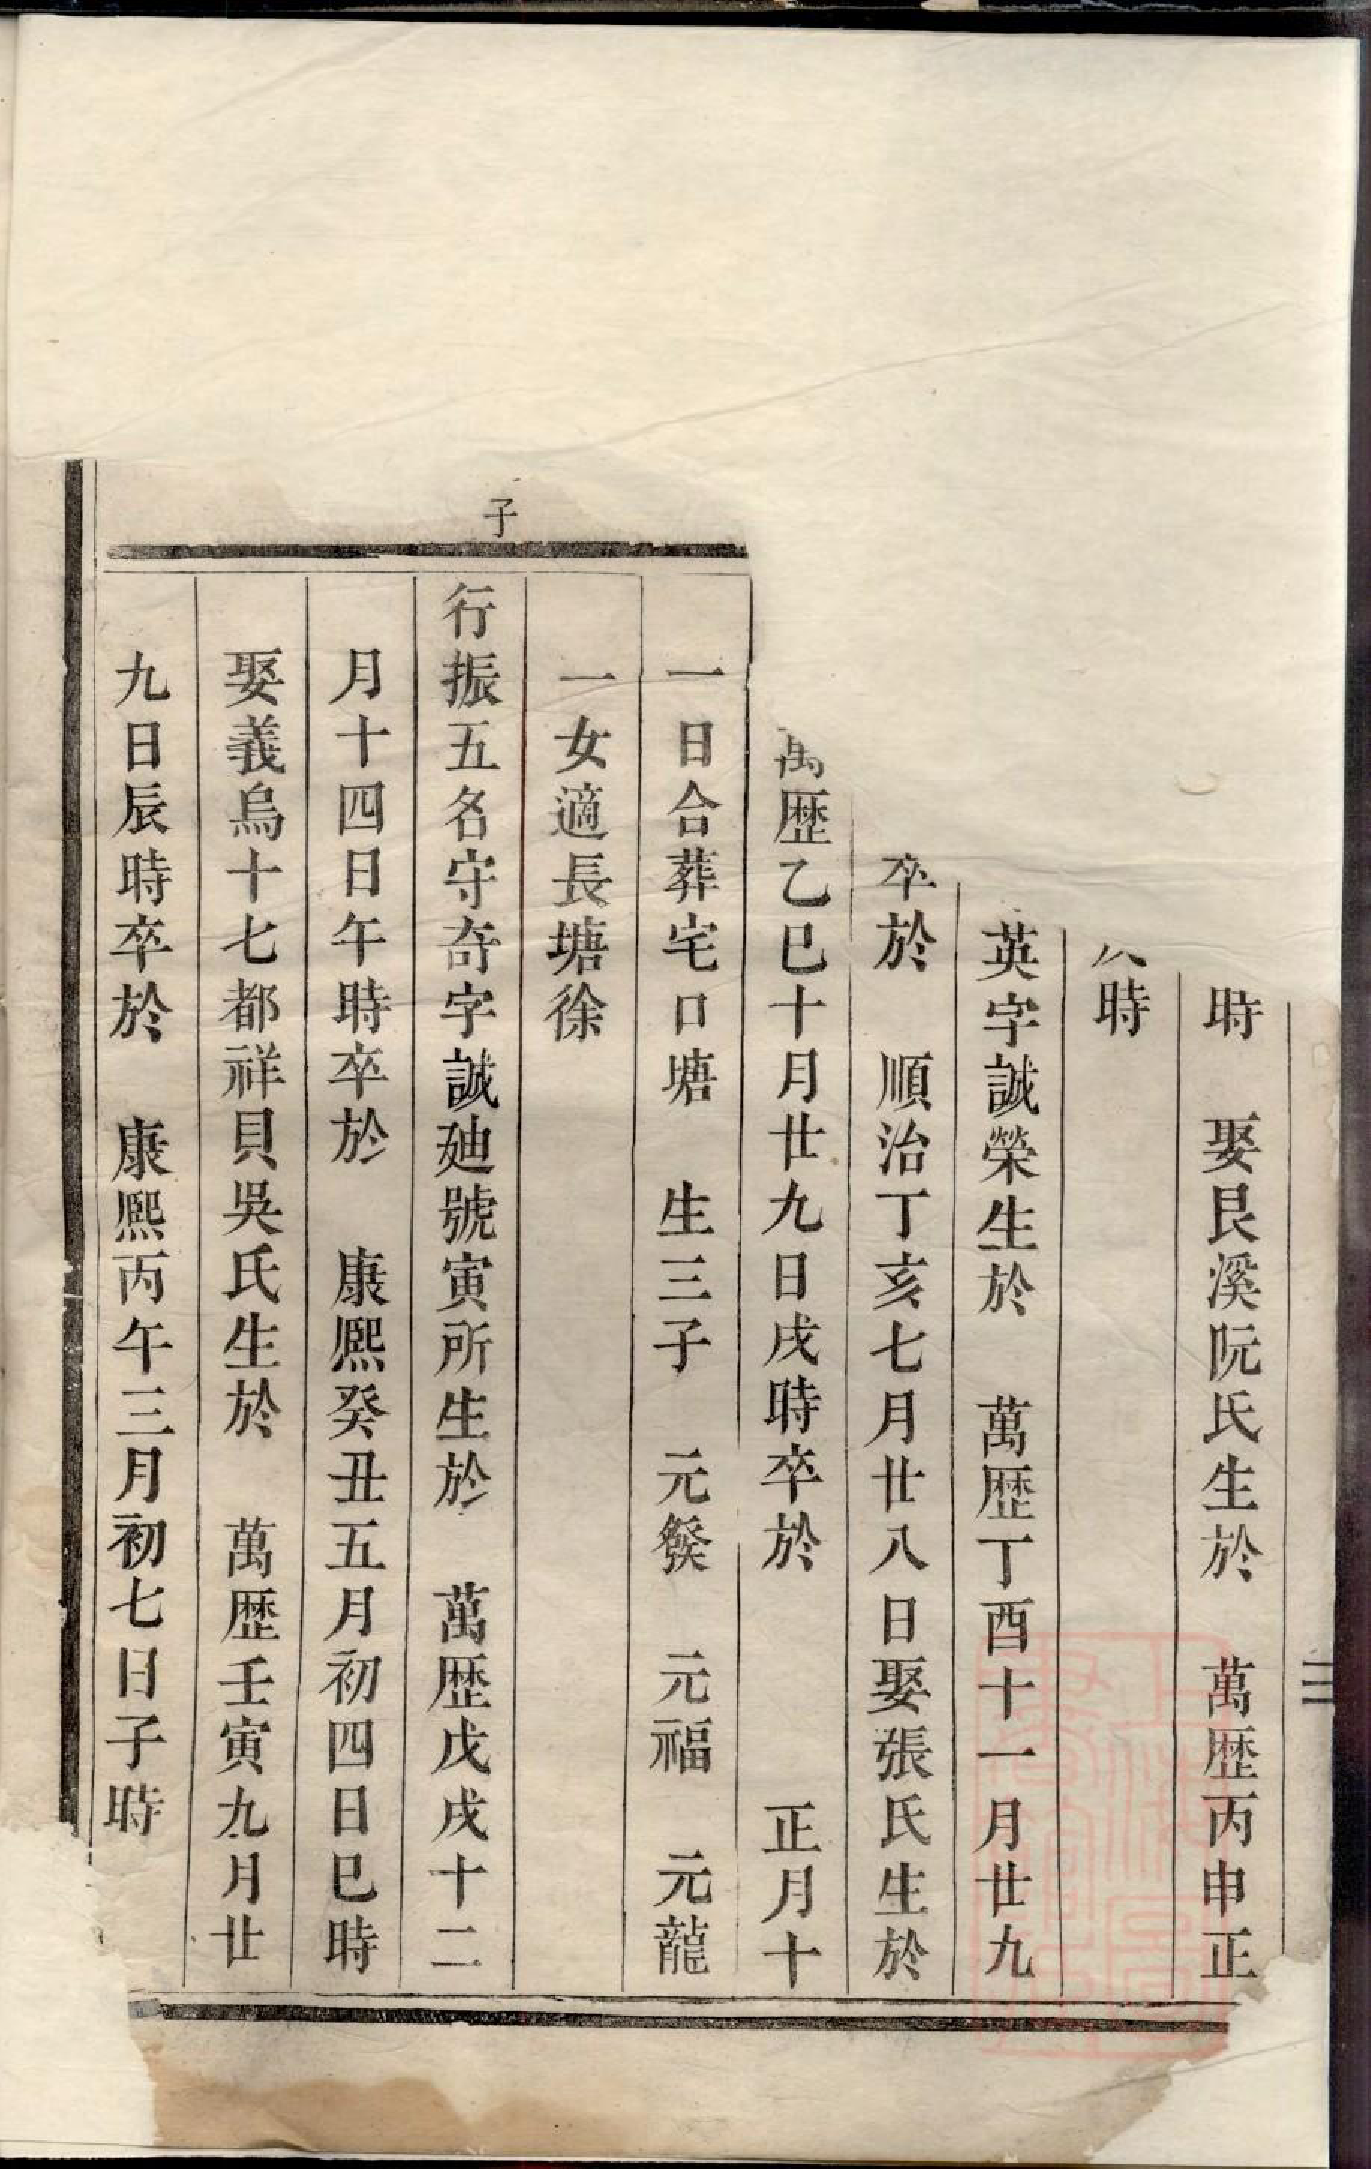 時　娶艮溪阮氏生於　萬歴丙申正
時
英字誠榮生於　萬歴丁酉十一月廿九
卒於　順治丁亥七月廿八日娶張氏生於
萬歴乙巳十月廿九日戌時卒於　正月十
一日合葬宅口塘　生三子　元　元福　元龍
一女適長塘徐
子
行振五名守奇字誠廸號寅所生於　萬歴戊戌十二
月十四日午時卒於　康熈癸丑五月初四日巳時
娶義烏十七都祥貝吳氏生於　萬歴壬寅九月廿
九日辰時卒於　康熈丙午三月初七日子時